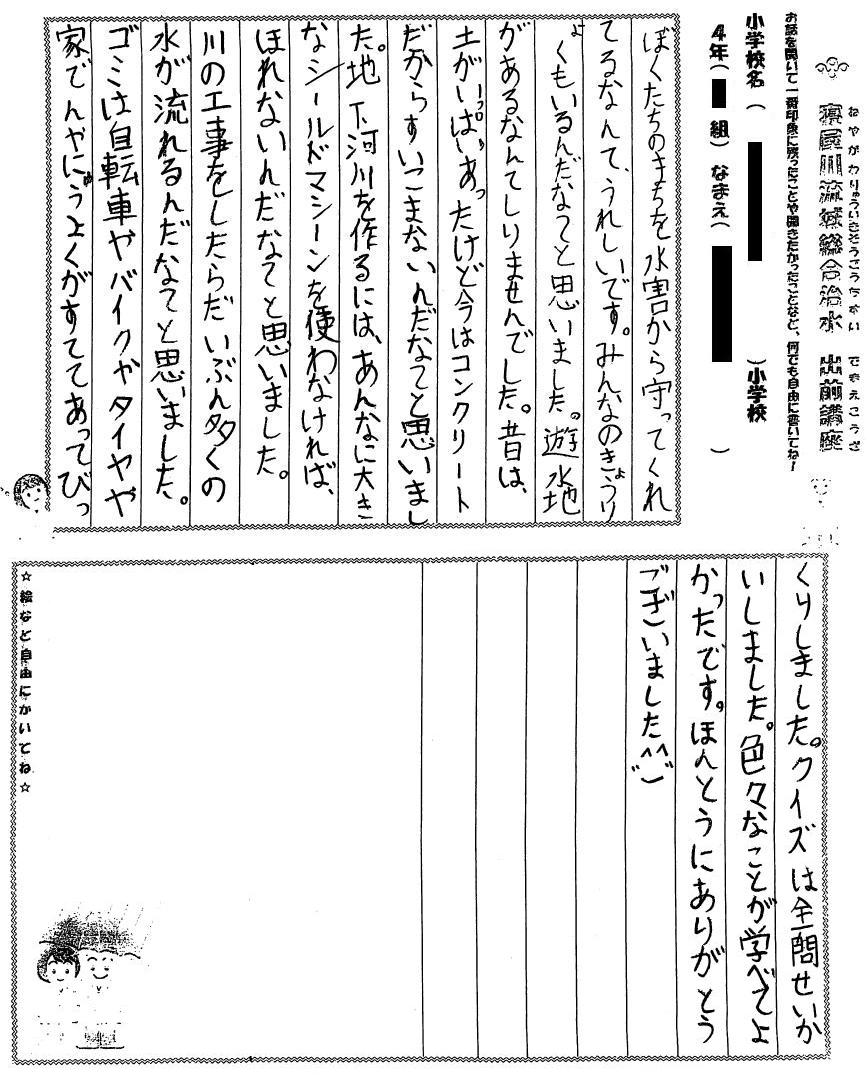 ねやがわりゅういきそうごうちすい でまえこうざ
寝屋川流域総合治水 出前講座
お話を聞いて一番印象に残ったことや聞きたかったことなど、何でも自由に書いてね!
小学校名( )小学校
4年( 組)なまえ( )
ぼくたちのまちを水害から守ってくれ
てるなんて、うれしいです。みんなのきょうり
ょくもいるんだなって思いました。遊水地
があるなんてしりませんでした。昔は、
土がいっぱいあったけど今はコンクリート
だからすいこまないんだなって思いまし
た。地下河川を作るには、あんなに大き
なシールドマシーンを使わなければ、
ほれないんだなって思いました。
川の工事をしたらだいぶん多くの
水が流れるんだなって思いました。
ゴミは自転車やバイクやタイヤや
家でんやにゅうよくがすててあってびっ
くりしました。クイズは全問せいか
いしました。色々なことが学べてよ
かったです。ほんとうにありがとう
ございました^^
☆絵など自由にかいてね☆